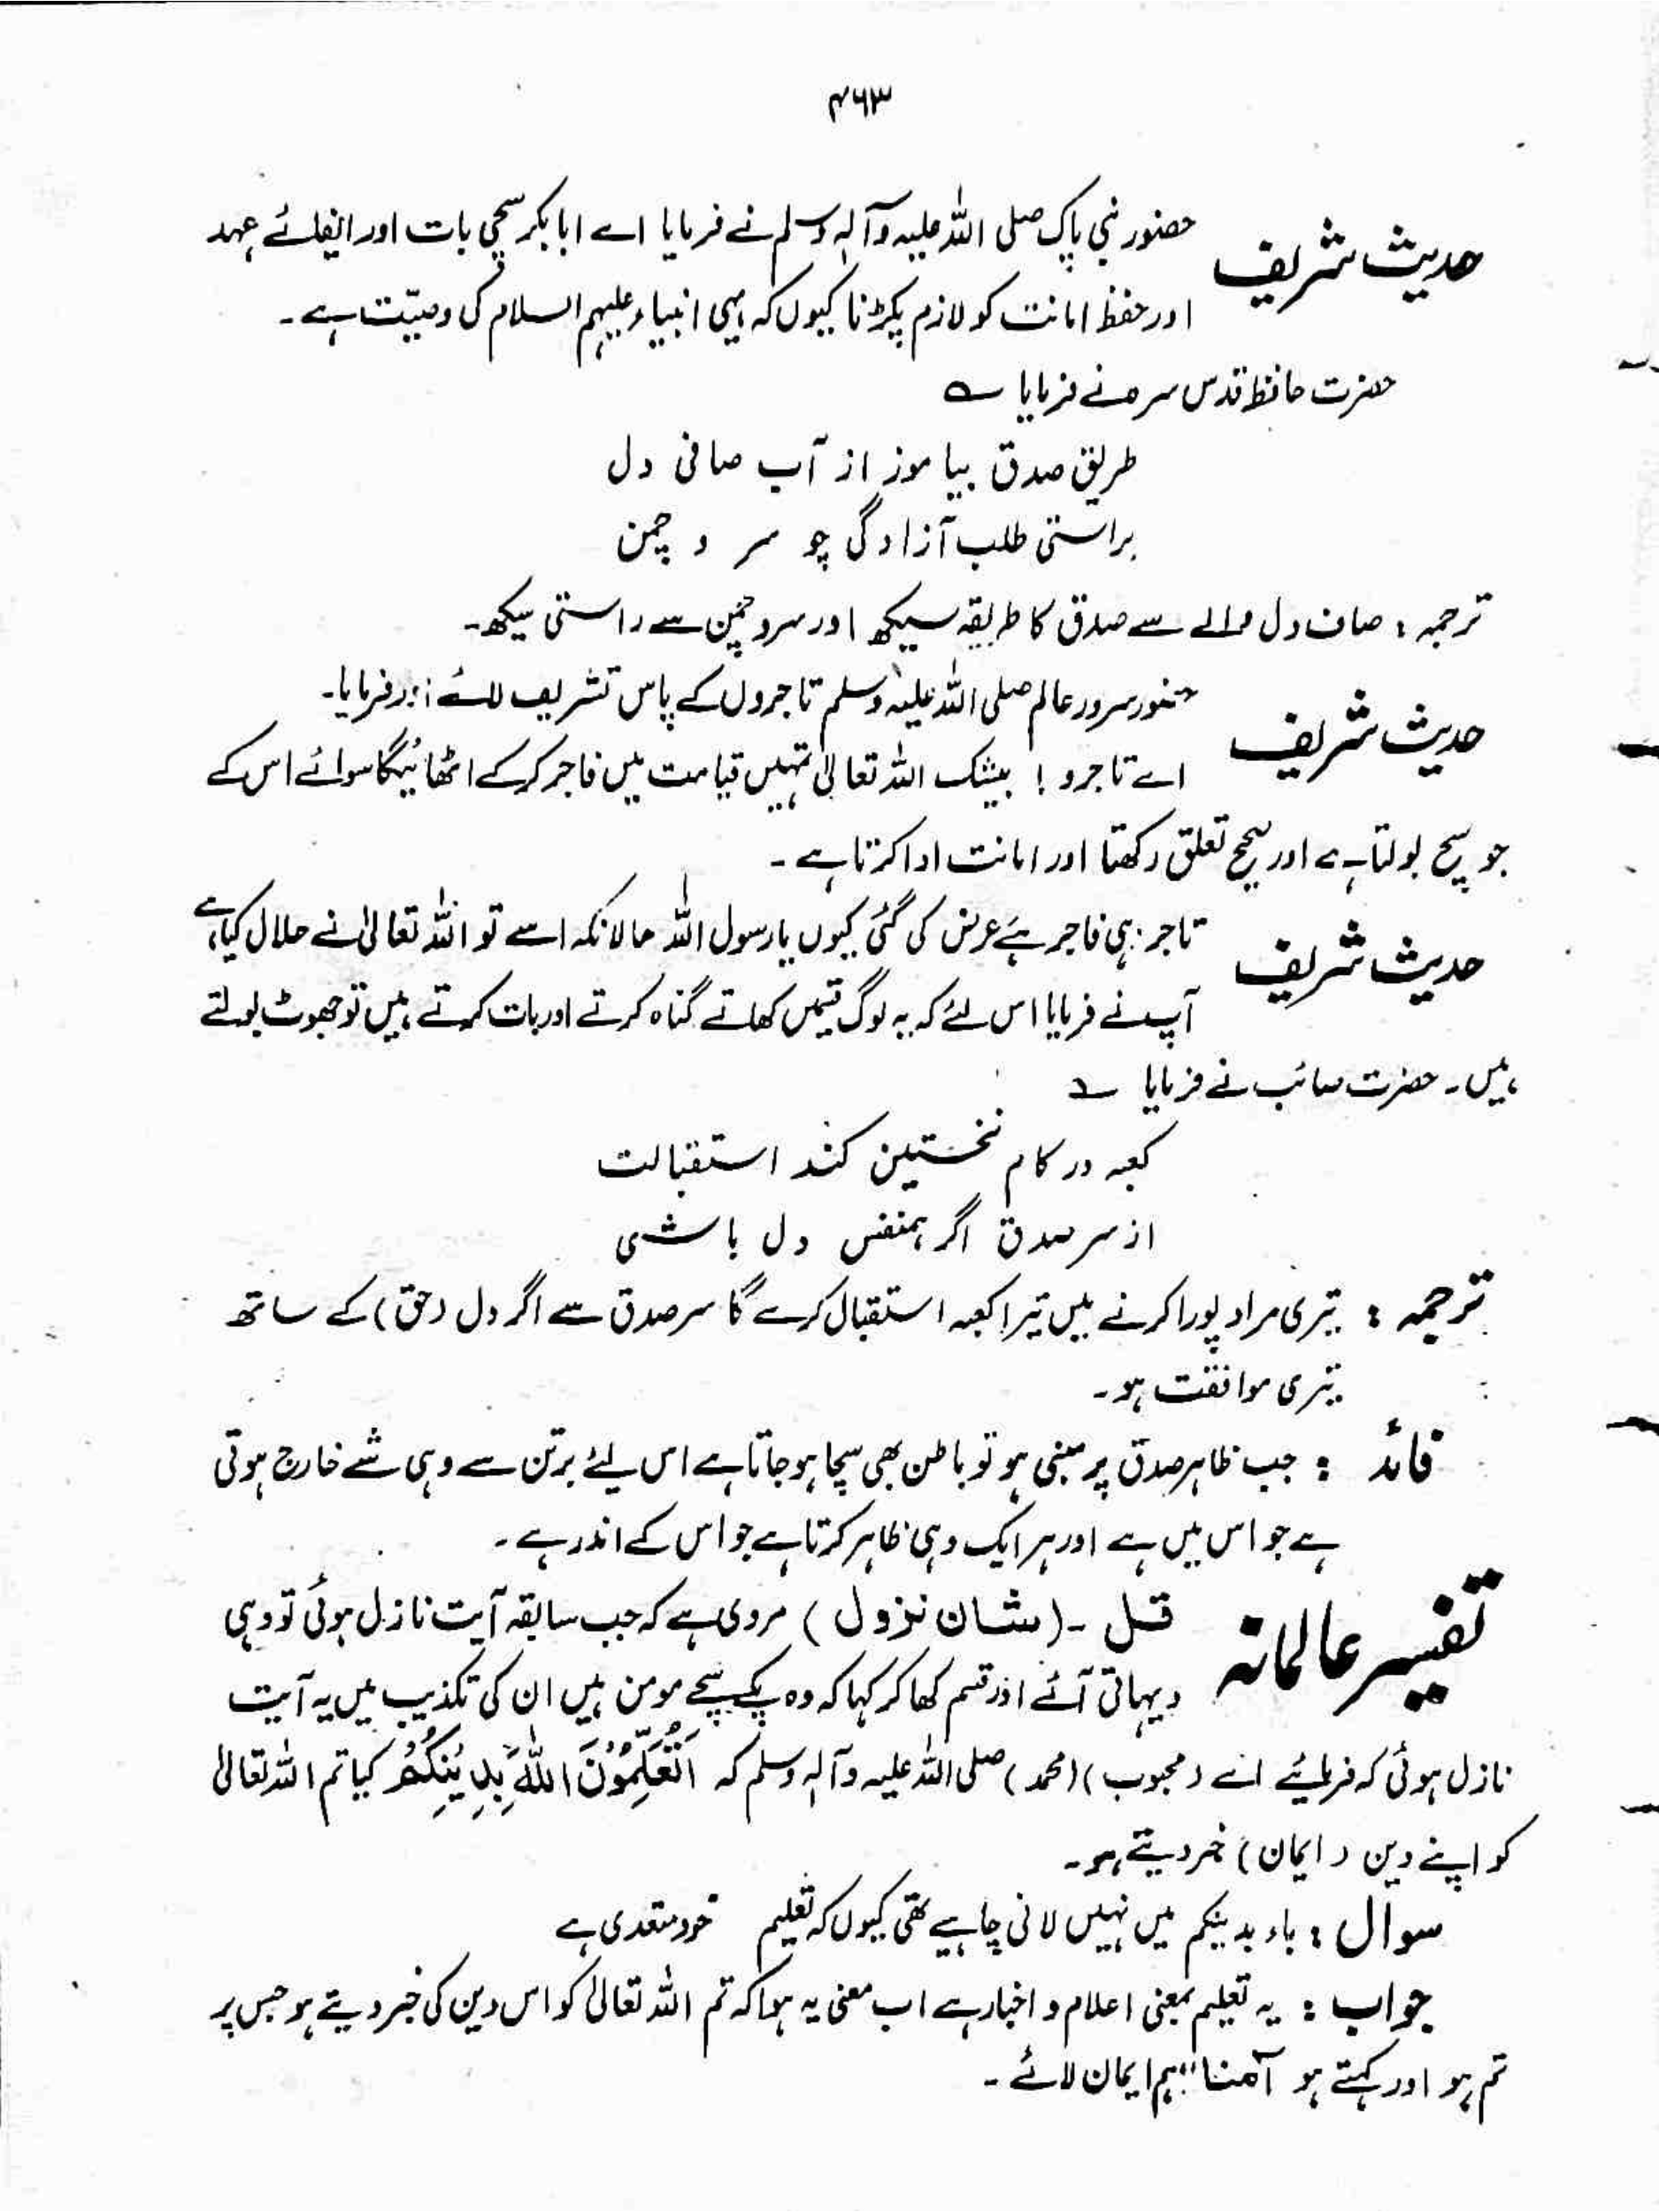 ۴۶۳
حدیث شریف حضور نبی پاک صلی اللہ علیہ وآلہ وسلم نے فرمایا اے ابابکر سچی بات اور ایفائے عہد
اور حفظ امانت کو لازم پکڑنا کیوں کہ یہی انبیاء علیہم السلام کی وصیّت ہے۔
حضرت حافظ قدس سرہ نے فرمایا ؎
طریق صدق بیاموز از آب صافی دل
براستی طلب آزادگی چو سر و چمن
ترجمہ : صاف دل والے سے صدق کا طریقہ سیکھ اور سرو چمن سے راستی سیکھ۔
حدیث شریف حضور سرور عالم صلی اللہ علیہ وسلم تاجروں کے پاس تشریف لائے اور فرمایا۔
اے تاجرو ! بیشک اللہ تعالیٰ تمہیں قیامت میں فاجر کرکے اٹھائیگا سوائے اس کے
جو سچ بولتا ہے اور صحیح تعلق رکھتا اور امانت ادا کرتا ہے ۔
حدیث شریف تاجر ہی فاجر ہے عرض کی گئی کیوں یا رسول اللہ حالانکہ اسے تو اللہ تعالیٰ نے حلال کیا ہے
آپ نے فرمایا اس لئے کہ یہ لوگ قسمیں کھاتے گناہ کرتے اور بات کرتے ہیں تو جھوٹ بولتے
ہیں۔ حضرت صائب نے فرمایا ؎
کعبہ در کام نخستین کند استقبالت
از سر صدق اگر ہمنفس دل باشی
ترجمہ : تیری مراد پورا کرنے میں تیرا کعبہ استقبال کرے گا سر صدق سے اگر دل (حق) کے ساتھ
تیری موافقت ہو۔
فائد : جب ظاہر صدق پر مبنی ہو تو باطن بھی سچا ہو جاتا ہے اس لیئے برتن سے وہی شے خارج ہوتی
ہے جو اس میں ہے اور ہر ایک وہی ظاہر کرتا ہے جو اس کے اندر ہے ۔
تفسیر عالمانہ قل ۔ (شان نزول) مروی ہے کہ جب سابقہ آیت نازل ہوئی تو وہی
دیہاتی آئے اور قسم کھا کر کہا کہ وہ پکے سچے مومن ہیں ان کی تکذیب میں یہ آیت
نازل ہوئی کہ فرمائیے اے (محبوب) (محمد) صلی اللہ علیہ وآلہ وسلم کہ اَتُعَلِّمُوْنَ اللّٰہَ بِدِیْنِکُمْ کیا تم اللہ تعالیٰ
کو اپنے دین (ایمان) خبر دیتے ہو۔
سوال : باء بدینکم میں نہیں لانی چاہیے تھی کیوں کہ تعلیم خود متعدی ہے
جواب : یہ تعلیم بمعنی اعلام و اخبار ہے اب معنی یہ ہوا کہ تم اللہ تعالیٰ کو اس دین کی خبر دیتے ہو جس پر
تم ہو اور کہتے ہو آمنا "ہم ایمان لائے ۔